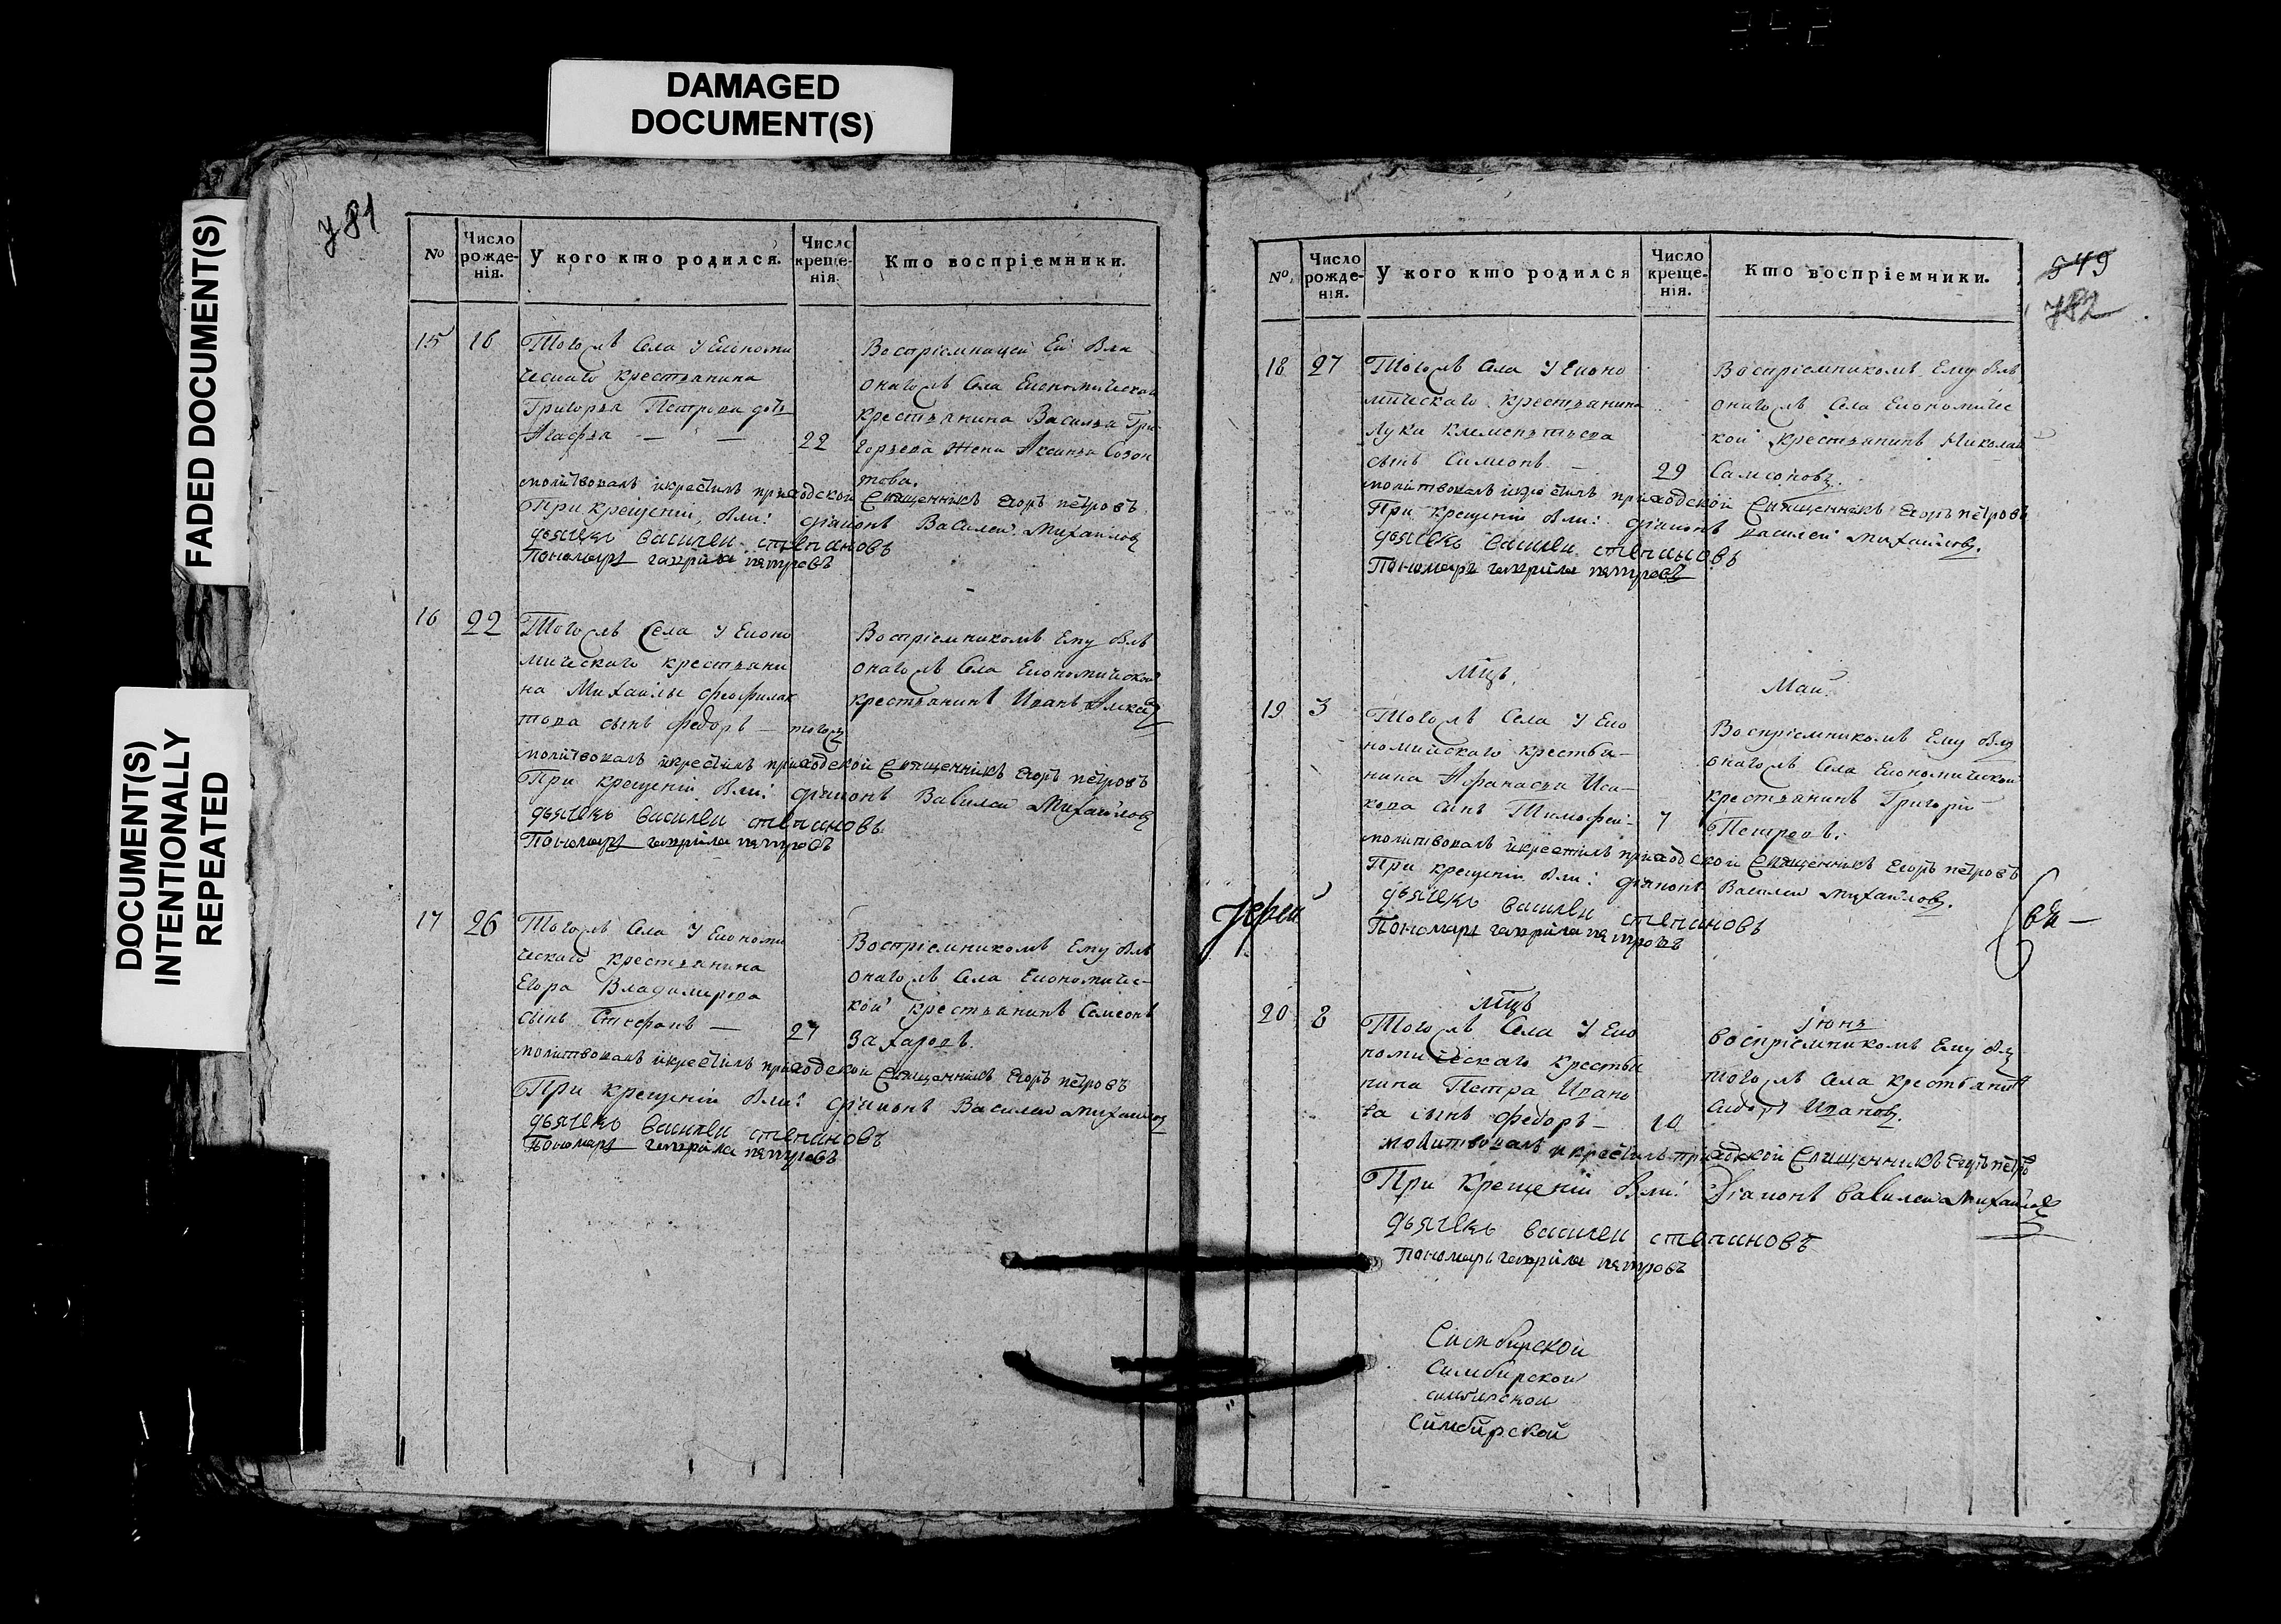 DAMAGED
DOCUMENT(S)
FADED DOCUMENT(S)
DOCUMENT(S)
INTENTIONALLY
REPEATED
781
№
Число рожденія.
У кого кто родился.
Число крещенія.
Кто воспріемники.
15 16
Тогожъ Села у Економи
ческаго крестьянина
Григорья Петрова дочь
Агафья — — 22
Воспріемницей Ей бла
онагожъ Села Економической
крестьянина Василья Гри
горьева жена Аксинья Созон
това.
молитвовалъ икрестилъ приходской Священникъ Егоръ петровъ
При крещеніи были: діаконъ Василей Михайловъ
дьячекъ василеи степановъ
Пономарь гаврила петровъ
16 22
Тогожъ Села у Еконо
мическаго крестьяни
на Михайлы феофилак
това сынъ федоръ — тогожъ
Воспріемникомъ Ему былъ
онагожъ Села Економической
крестьянинъ Иванъ
молитвовалъ икрестилъ приходской Священникъ Егоръ петровъ
При крещеніи были: діаконъ Василеи Михайловъ
дьячекъ василеи степановъ
Пономарь гаврила петровъ
17 26
Тогожъ Села у Економи
ческаго крестьянина
Егора Владимирова
сынъ Стефанъ — 27
Воспріемникомъ Ему былъ
онагожъ Села Економичес
кой крестьянинъ Самсонъ
Захаровъ.
молитвовалъ икрестилъ приходской Священникъ Егоръ петровъ
При крещеніи были: діаконъ Василеи Михайловъ
дьячекъ василеи степановъ
Пономарь гаврила петровъ
549
782
№.
Число рожденія.
У кого кто родился
Число крещенія.
Кто воспріемники.
18 27
Тогожъ Села у Еконо
мическаго крестьянина
Луки Клементьева
сынъ Симеонъ — 29
Воспріемникомъ Ему былъ
онагожъ Села Економичес
кой крестьянинъ Николай
Самсоновъ.
молитвовалъ икрестилъ приходской Священникъ Егоръ петровъ
При крещеніи были: діаконъ василей Михайловъ.
дьячекъ василеи степановъ
Пономарь гаврила петровъ
Мцъ. Маи.
19 3
Тогожъ Села у Еко
номическаго крестья—
нина Афанасья Иса—
кова сынъ Тимофеи— 7
Воспріемникомъ Ему былъ
онагожъ Села Економической
крестьянинъ Григорій
Петровъ.
молитвовалъ икрестилъ приходской Священникъ Егоръ петровъ
При крещеніи были: діаконъ Василеи Михайловъ.
дьячекъ василеи степановъ
Пономарь гаврила петровъ
Іереи
Мцъ Іюнь
20 8
Тогожъ Села у Еко
номическаго крестья
нина Петра Ивано
ва сынъ федоръ — 10
воспріемникомъ Ему былъ
тогожъ Села крестьянинъ
Сидоръ Ивановъ.
молитвовалъ икрестилъ приходской Священникъ Егоръ петро
При крещеніи были: Діаконъ василеи Михайлов
дьячекъ василеи степановъ
Пономарь гаврила петровъ
Симбирской
Симбирской
симбирской
Симбирской